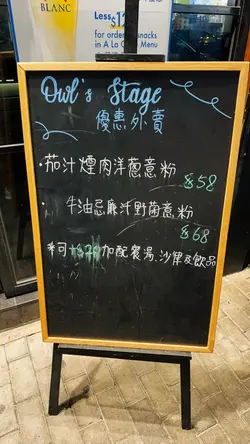 BLANC
Less $12
for orders
snacks
in A La Carte Menu
Owl's Stage
優惠外賣
·茄汁煙肉洋蔥意粉
$58
·牛油忌廉汁野菌意粉
$68
加配餐湯,沙律及飲品